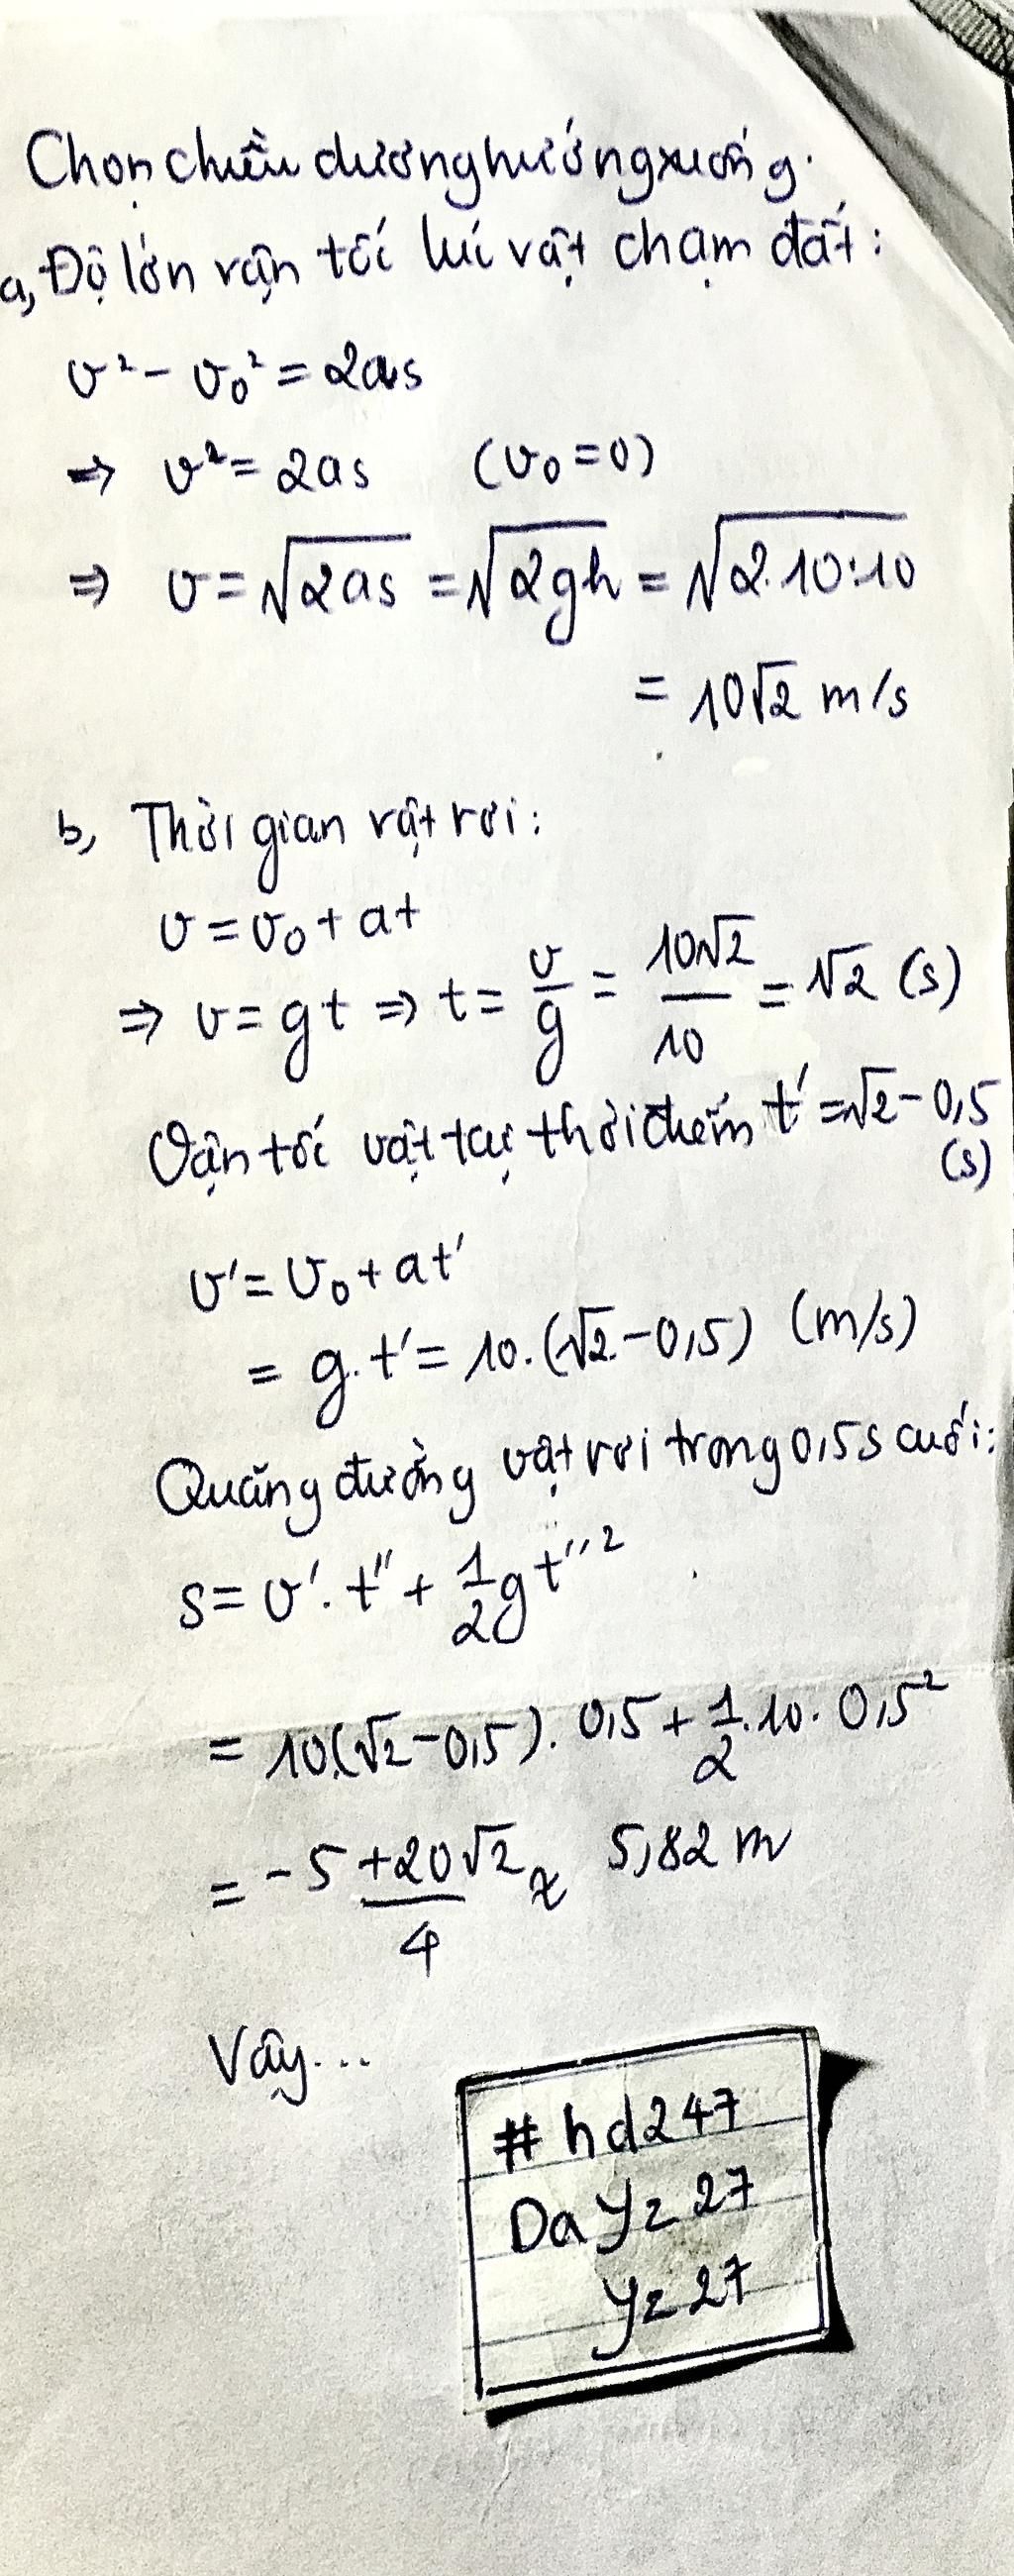 Chọn chiều dương hướng xuống.
a, Độ lớn vận tốc lúc vật chạm đất:
v² - v₀² = 2as
⇒ v² = 2as (v₀ = 0)
⇒ v = √2as = √2gh = √2.10.10
= 10√2 m/s
b, Thời gian vật rơi:
v = v₀ + at
⇒ v = gt ⇒ t = v/g = 10√2/10 = √2 (s)
Vận tốc vật tại thời điểm t' = √2 - 0,5 (s)
v' = v₀ + at'
= g.t' = 10.(√2 - 0,5) (m/s)
Quãng đường vật rơi trong 0,5s cuối:
s = v'.t'' + 1/2 gt''²
= 10.(√2 - 0,5). 0,5 + 1/2.10. 0,5²
= (-5 + 20√2)/4 ≈ 5,82 m
Vậy...
# hd247
Da yz 27
yz 27